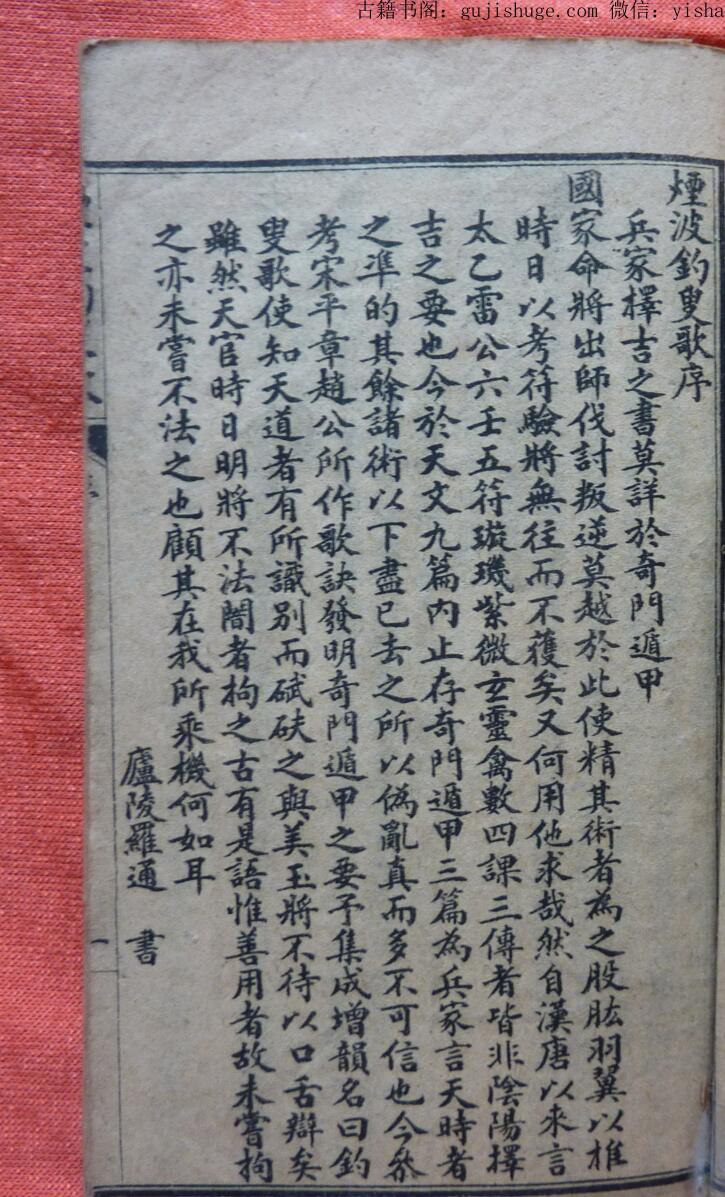 古籍书阁：gujishuge.com 微信：yisha
煙波釣叟歌序
兵家擇吉之書莫詳於奇門遁甲
國家命將出師伐討叛逆莫越於此使精其術者為之股肱羽翼以推
時日以考符驗將無往而不獲矣又何用他求哉然自漢唐以來言
太乙雷公六壬五符璇璣紫微玄靈禽數四課三傳者皆非陰陽擇
吉之要也今於天文九篇內止存奇門遁甲三篇為兵家言天時者
之準的其餘諸術以下盡已去之所以偽亂真而多不可信也今叅
考宋平章趙公所作歌訣發明奇門遁甲之要予集成增韻名曰釣
叟歌使知天道者有所識別而碔砆之與美玉將不待以口舌辯矣
雖然天官時日明將不法闇者拘之古有是語惟善用者故未嘗拘
之亦未嘗不法之也顧其在我所乘機何如耳
廬陵羅通 書
一